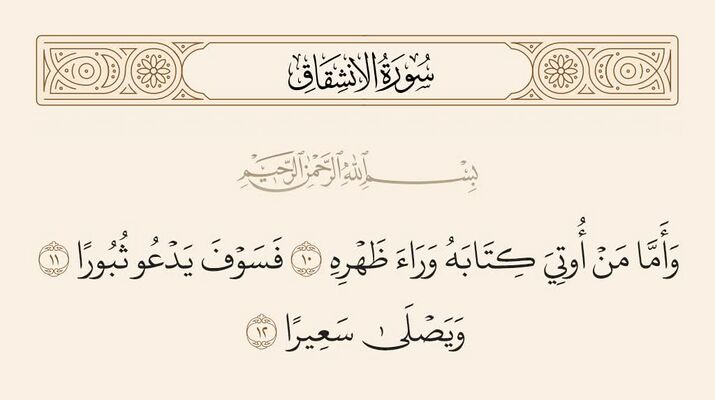 سُورَةُ الانشِقَاقِ
بِسْمِ اللَّهِ الرَّحْمَٰنِ الرَّحِيمِ
وَأَمَّا مَنْ أُوتِيَ كِتَابَهُ وَرَاءَ ظَهْرِهِ ١٠ فَسَوْفَ يَدْعُو ثُبُورًا ١١
وَيَصْلَىٰ سَعِيرًا ١٢